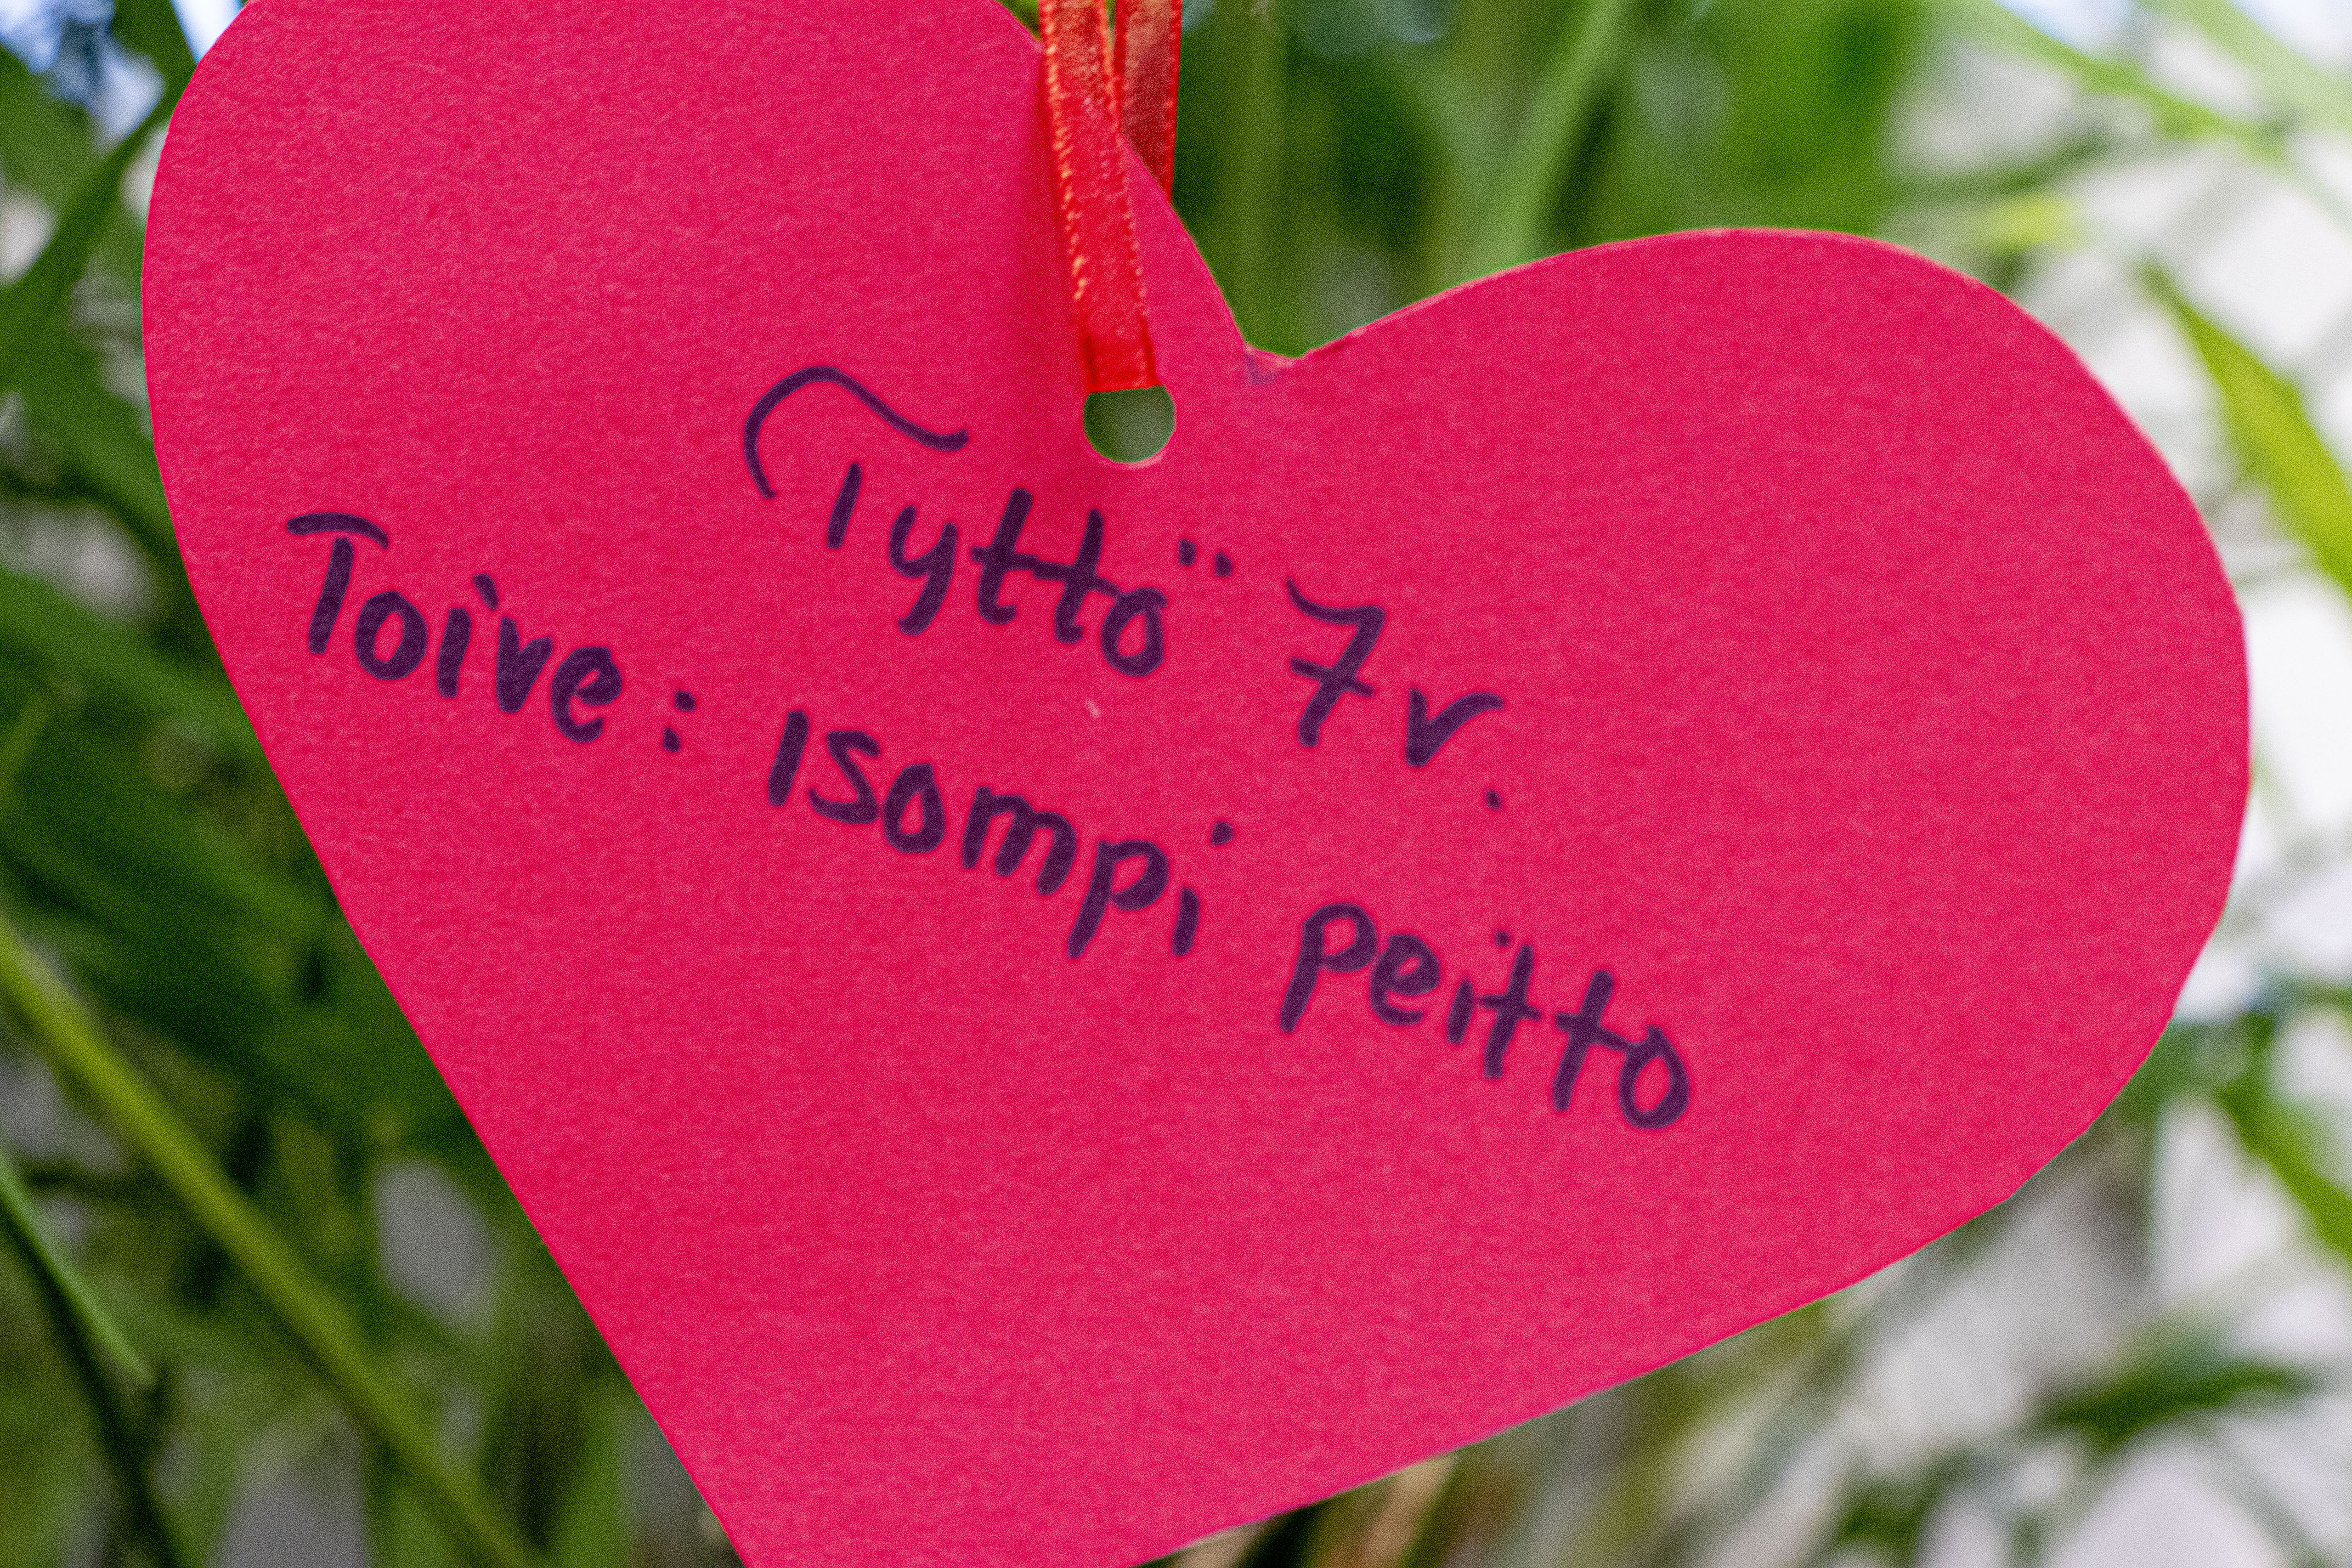 Tyttö 7 v.
Toive: isompi peitto